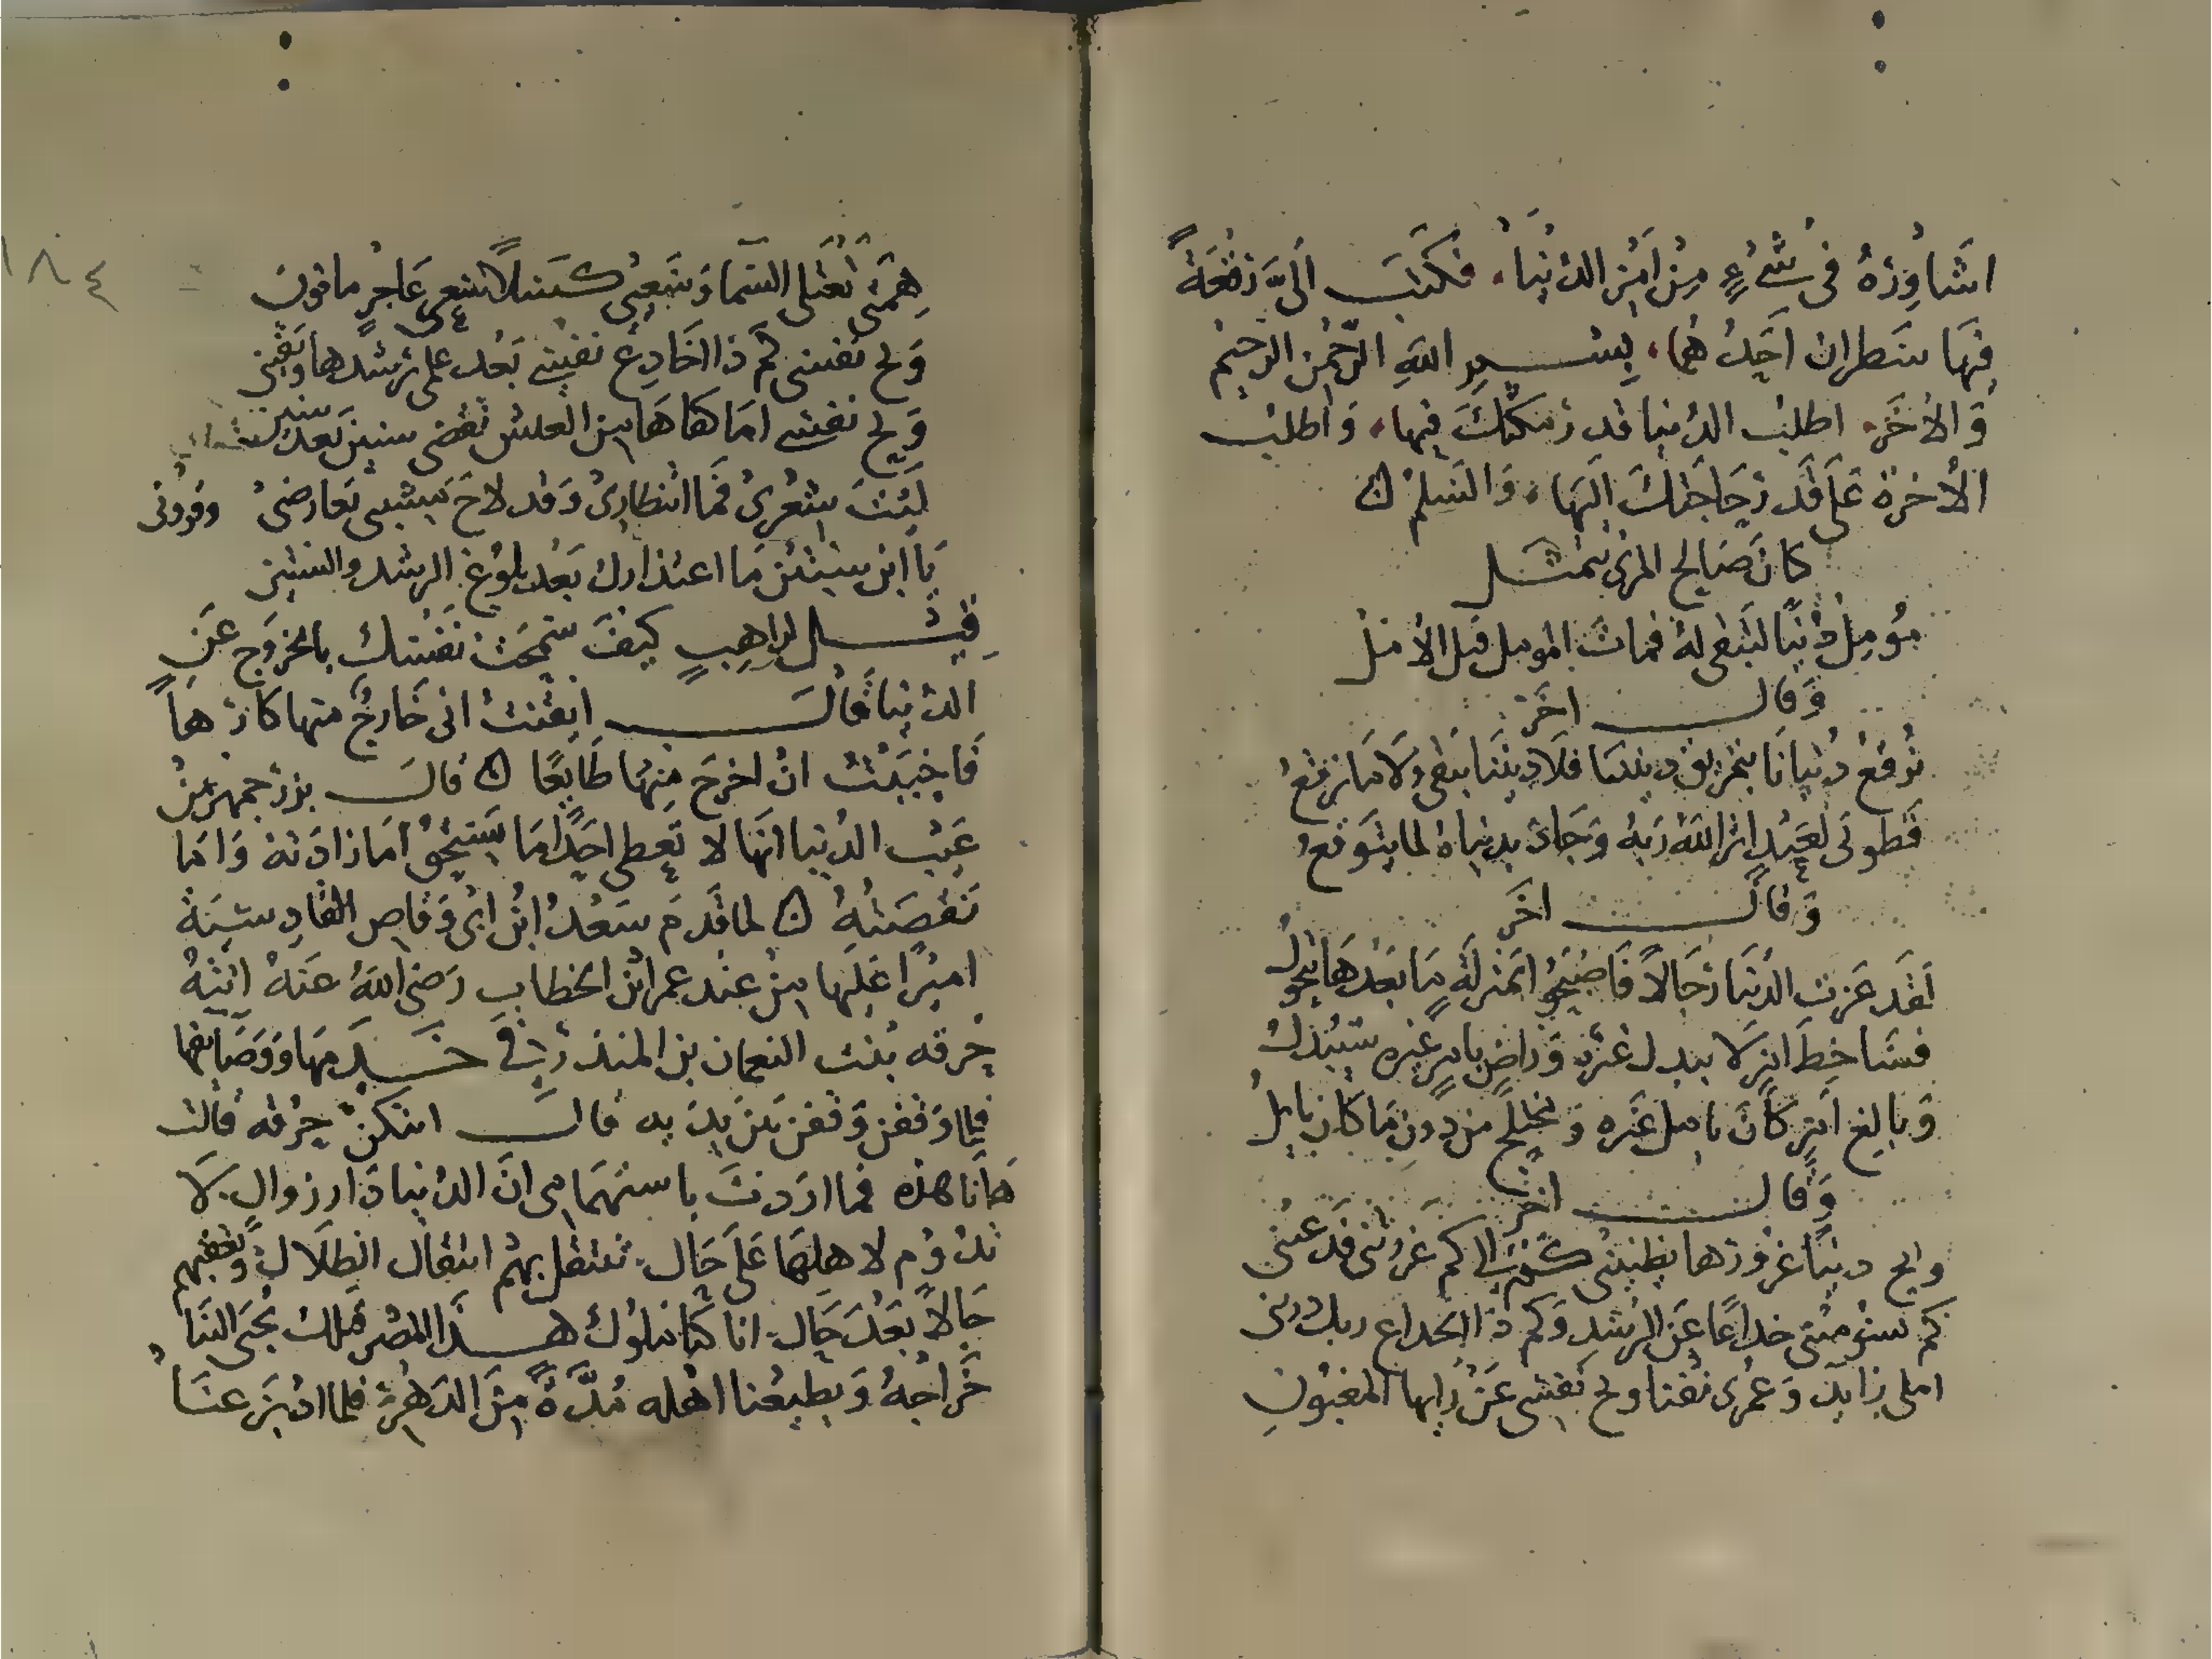 اشَاوِرُهُ فى شَىْءٍ مِنْ اَمْرِ الدُّنْيَا، فكَتَبَ اِلَىَّ رُقْعَةً
فِيهَا سَطران اَحَدُهُمَا، بِسْمِ اللهِ الرَّحْمنِ الرحِيْم
وَالاٰخَر اطلب الدُنيا قدر مكثِكَ فيها، وَاطلب
الاٰخرة عَلَى قَدر حَاجَتِكَ اليَهَا، وَالسَلم ن
كانَ صَالح المرى يتمثل
مُوملُ دُنْيَا لتَبْقى لهُ فمات المومل قبل الامل
وَقال اخَر
نُرقعُ دُنيانَا بتمزيق ديننا فلَا دِيننَا يَبْقى ولَا ما نرقعُ
فَطوبَى لعَبْدٍ اثر اللهَ رَبهُ وَجَاد بدنياهُ لما يتَوقعُ
وَقال اخَر
لقَد غرتِ الدُنيَا رجَالاً فَاصْبَحُوا بمنزلَةٍ مَا بَعْدهَا متحول
فسَاخط امرٍ لا يبدل غيره وَراضٍ بامرٍ غيره سَيُبْدَلُ
وَبالغ امرٍ كانَ يامل غيره وَمختلج من دونِ مَا كان يامل
وَقال اخر
وابح دنيا غرورها يطبينى كم غرتنى قد عتنى
كم تسومنى خداعًا عَن الرشدِ وَكم ذا الخداع
املى زايد وَعمرى نفنا وبح نَفسِى عَن رايها المغبُونِ
١٨٤
هِمَتى تَعْتلى السَما وَسَعيى كسَلاً سَعى عَاجزٍ مافون
وَيح نَفسى كم ذا اخَادِعُ نفسِى بَعْد علمى برُشدها وَيقينى
وَيح نفسى امَا كفاهَا من العيش تقضى سنين بَعدَ سنين
لَيْتَ شِعْرِى فمَا انتظارِىْ وَقد لاحَ بَعارضىْ وفرونى
يَا ابن ستين مَا اعتذارك بَعد بلوغ الرشد والستين
قِيل لراهِبٍ كيفَ سَمحَت نَفسُكَ بالخروَج عَنِ
الدُنيا قالَ ايقنتُ انى خَارجٌ منها كارهاً
فَاحْبَبْتُ انْ اخرجَ مِنهَا طَايعًا ن قالَ بزرجمهر منْ
عَيْب الدُنيا انهَا لا تَعطى احَدًا مَا يَستَحِقُ امَا زادَتهُ وَامَا
نَقصَتْهُ ن لما قَدمَ سَعْدُ ابْن ابى وَقاص القادِسيَة
اميْرًا عَليَها مِنْ عند عمر ابْن الخطابِ رَضىَ اللهُ عَنهُ اتتهُ
حرقه بنت النعمان بن المنذر فى خَدمِهَا وَوَصَايفها
فلما وَقفن وَقفن بَيْن يَديه قالَ ايتكن حِرْقه قالت
هَانا هذه فما ارَدتَ باستفهَامى انَ الدُنيا دَار زوالٍ لَا
تدُوم لاهلهَا عَلى حَال تنتقل بهمْ انتقال الظلال وَتعقبهم
حَالاً بَعْدَ حَال انا كنا ملوك هذَا المصر قَبلك يُجْبَى الينَا
خَراجُهُ وَيطيعُنا اهْله مُدَّةً مِنَ الدَهْرِ فلما ادْبَرَ عنَا